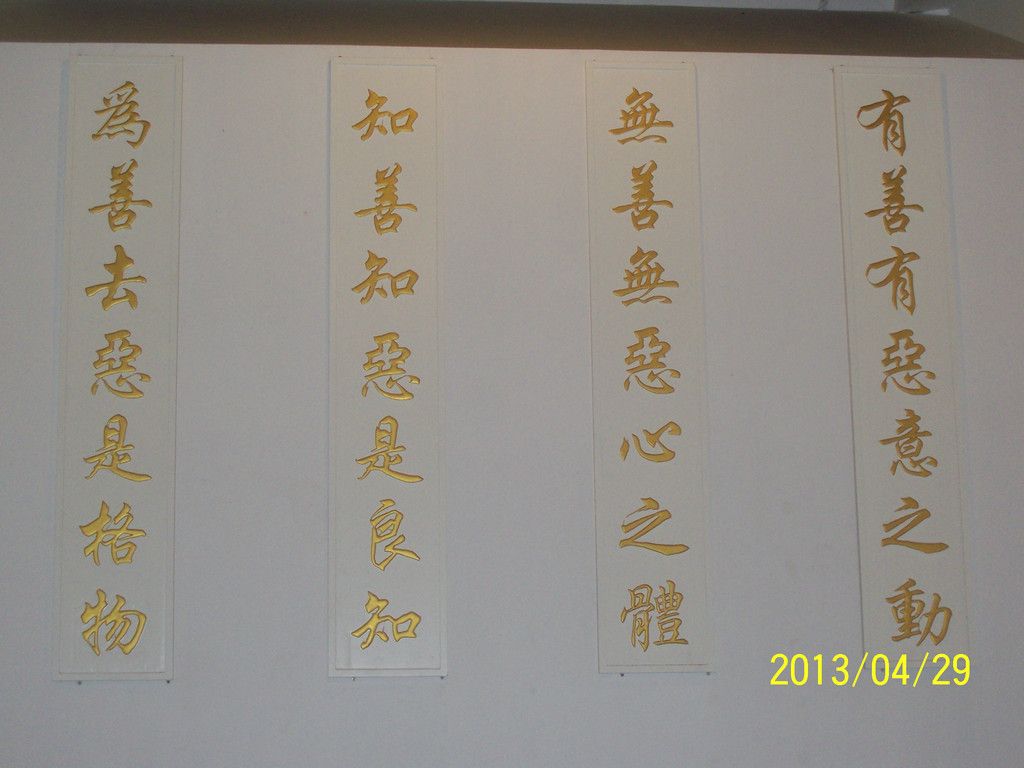 有善有惡意之動
無善無惡心之體
知善知惡是良知
爲善去惡是格物
2013/04/29